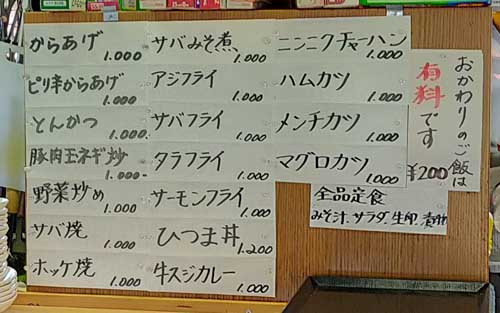 からあげ 1.000
ピリ辛からあげ 1.000
とんかつ 1.000
豚肉玉ネギ炒 1.000-
野菜炒め 1.000
サバ焼 1.000
ホッケ焼 1.000
サバみそ煮 1.000
アジフライ 1.000
サバフライ 1.000
タラフライ 1.000
サーモンフライ 1.000
ひつま丼 1.200
牛スジカレー 1.000
ニンニクチャーハン 1.000
ハムカツ 1.000
メンチカツ 1.000
マグロカツ 1.000
おかわりのご飯は
有料です
¥200
全品定食
みそ汁.サラダ.生卵.煮物